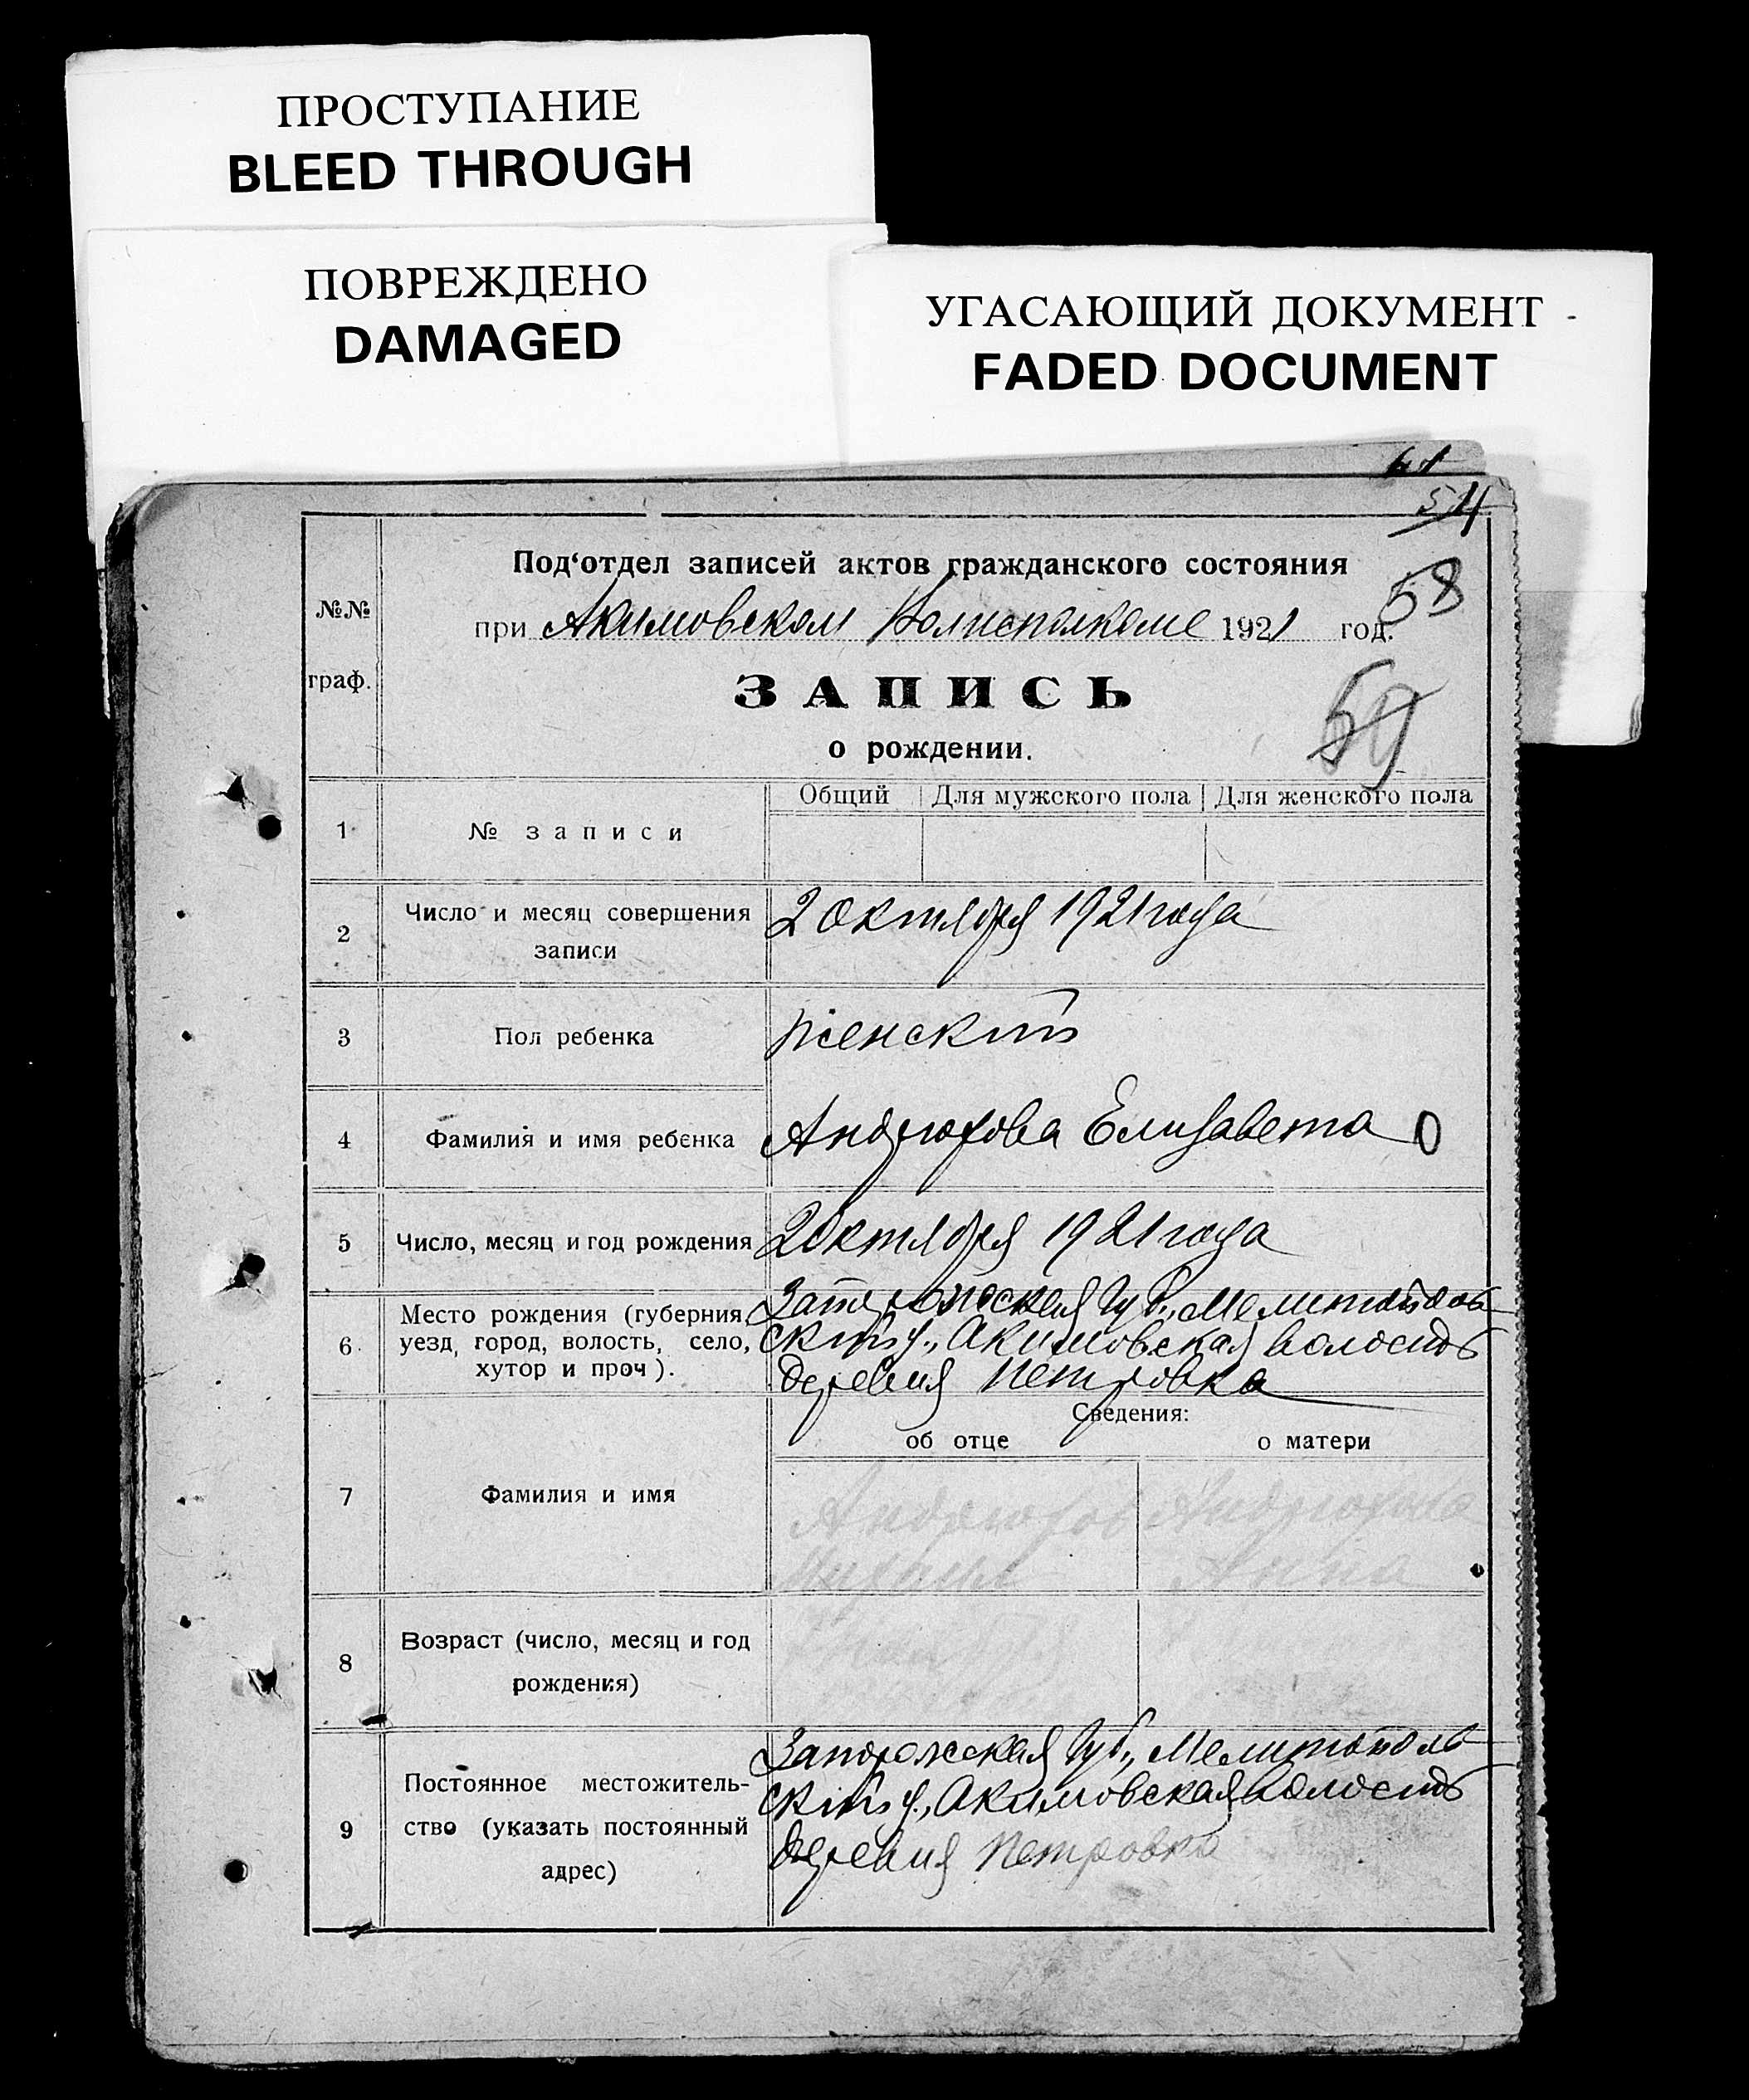 ПРОСТУПАНИЕ
BLEED THROUGH
ПОВРЕЖДЕНО
DAMAGED
УГАСАЮЩИЙ ДОКУМЕНТ
FADED DOCUMENT
54
58
59
№№
граф.
Под‘отдел записей актов гражданского состояния
при Акимовском Волисполкоме 1921 год.
ЗАПИСЬ
о рождении.
Общий Для мужского пола Для женского пола
1 № записи
2 Число и месяц совершения
записи
2 октября 1921 года
3 Пол ребенка женский
4 Фамилия и имя ребенка Андрюхова Елизавета
5 Число, месяц и год рождения 2 октября 1921 года
6 Место рождения (губерния,
уезд, город, волость, село,
хутор и проч).
Запорожская губ., Мелитополь
скій у., Акимовская волость
деревня Петровка
Сведения:
об отце о матери
7 Фамилия и имя
Андрюхов Андрюхова
Михаил Анна
8 Возраст (число, месяц и год
рождения)
9 Постоянное местожитель-
ство (указать постоянный
адрес)
Запорожская губ., Мелитополь
скій у., Акимовская волость
деревня Петровка